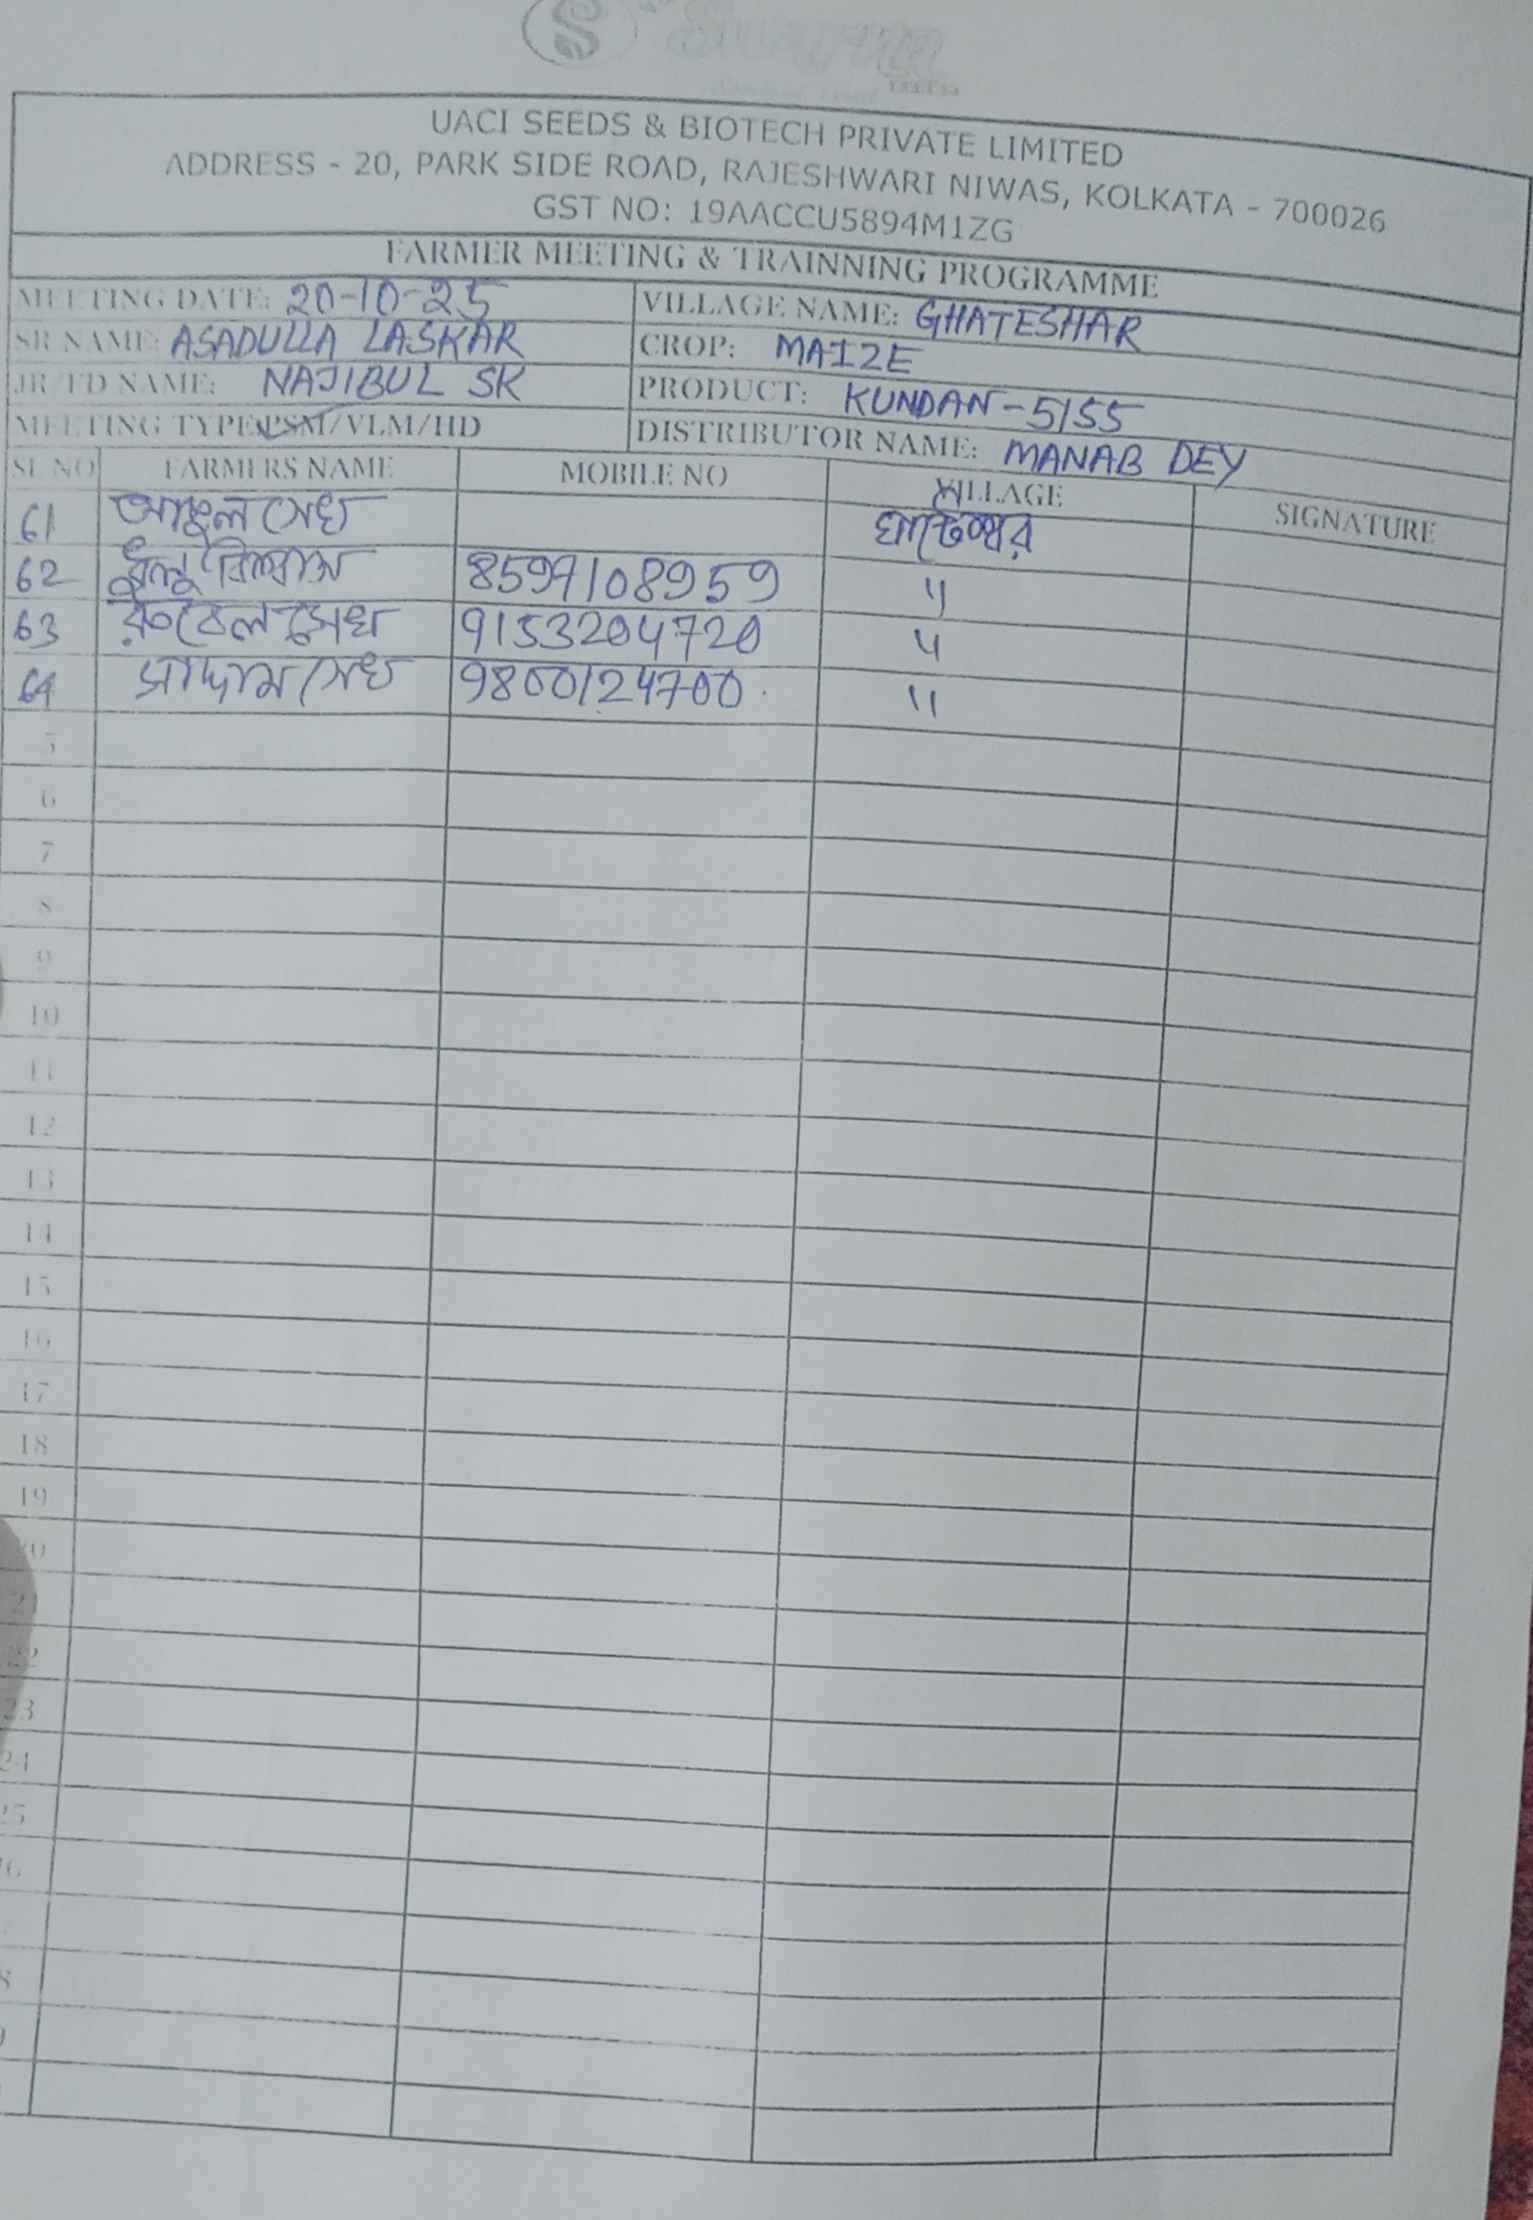 UACI SEEDS & BIOTECH PRIVATE LIMITED
ADDRESS - 20, PARK SIDE ROAD, RAJESHWARI NIWAS, KOLKATA - 700026
GST NO: 19AACCU5894M1ZG
FARMER MEETING & TRAINNING PROGRAMME
MEETING DATE: 20-10-25 VILLAGE NAME: GHATESHAR
SR NAME: ASADULLA LASKAR CROP: MAIZE
JR/FD NAME: NAJIBUL SK PRODUCT: KUNDAN-5155
MEETING TYPE: PSM/VLM/HD DISTRIBUTOR NAME: MANAB DEY
SL NO FARMERS NAME MOBILE NO VILLAGE SIGNATURE
61 সেখ ঘাটেশ্বর
62 বিশ্বাস 8597108959 "
63 সেখ 9153204720 "
64 সাদ্দাম সেখ 9800124700 "
5
6
7
8
9
10
11
12
13
14
15
16
17
18
19
20
21
22
23
24
25